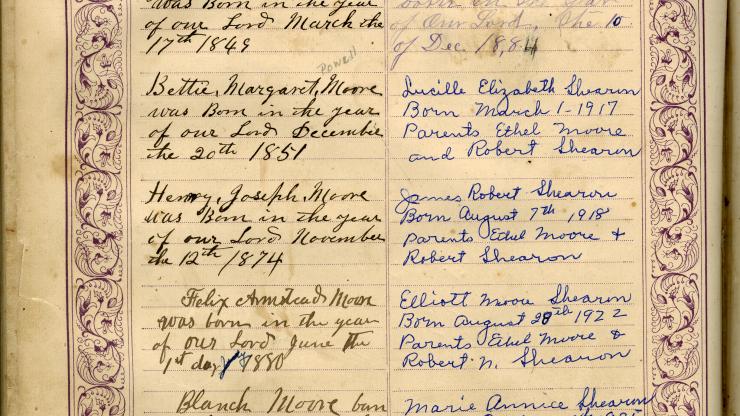 was Born in the year
of our Lord March the
17th 1849
Powell
Bettie, Margaret, Moore
was Born in the year
of our Lord December
the 20th 1851
Henry, Joseph, Moore
was Born in the year
of our Lord November
the 12th 1874
Felix Amstead Moore
was born in the year
of our Lord June the
1st day July 1880
Blanch Moore
of Our Lord, the 10
of Dec. 1884
Lucille Elizabeth Shearon
Born March 1-1917
Parents Ethel Moore
and Robert Shearon
James Robert Shearon
Born August 7th 1918
Parents Ethel Moore &
Robert Shearon
Elliott Moore Shearon
Born August 28th 1922
Parents Ethel Moore &
Robert N. Shearon
Marie Annice Shearon